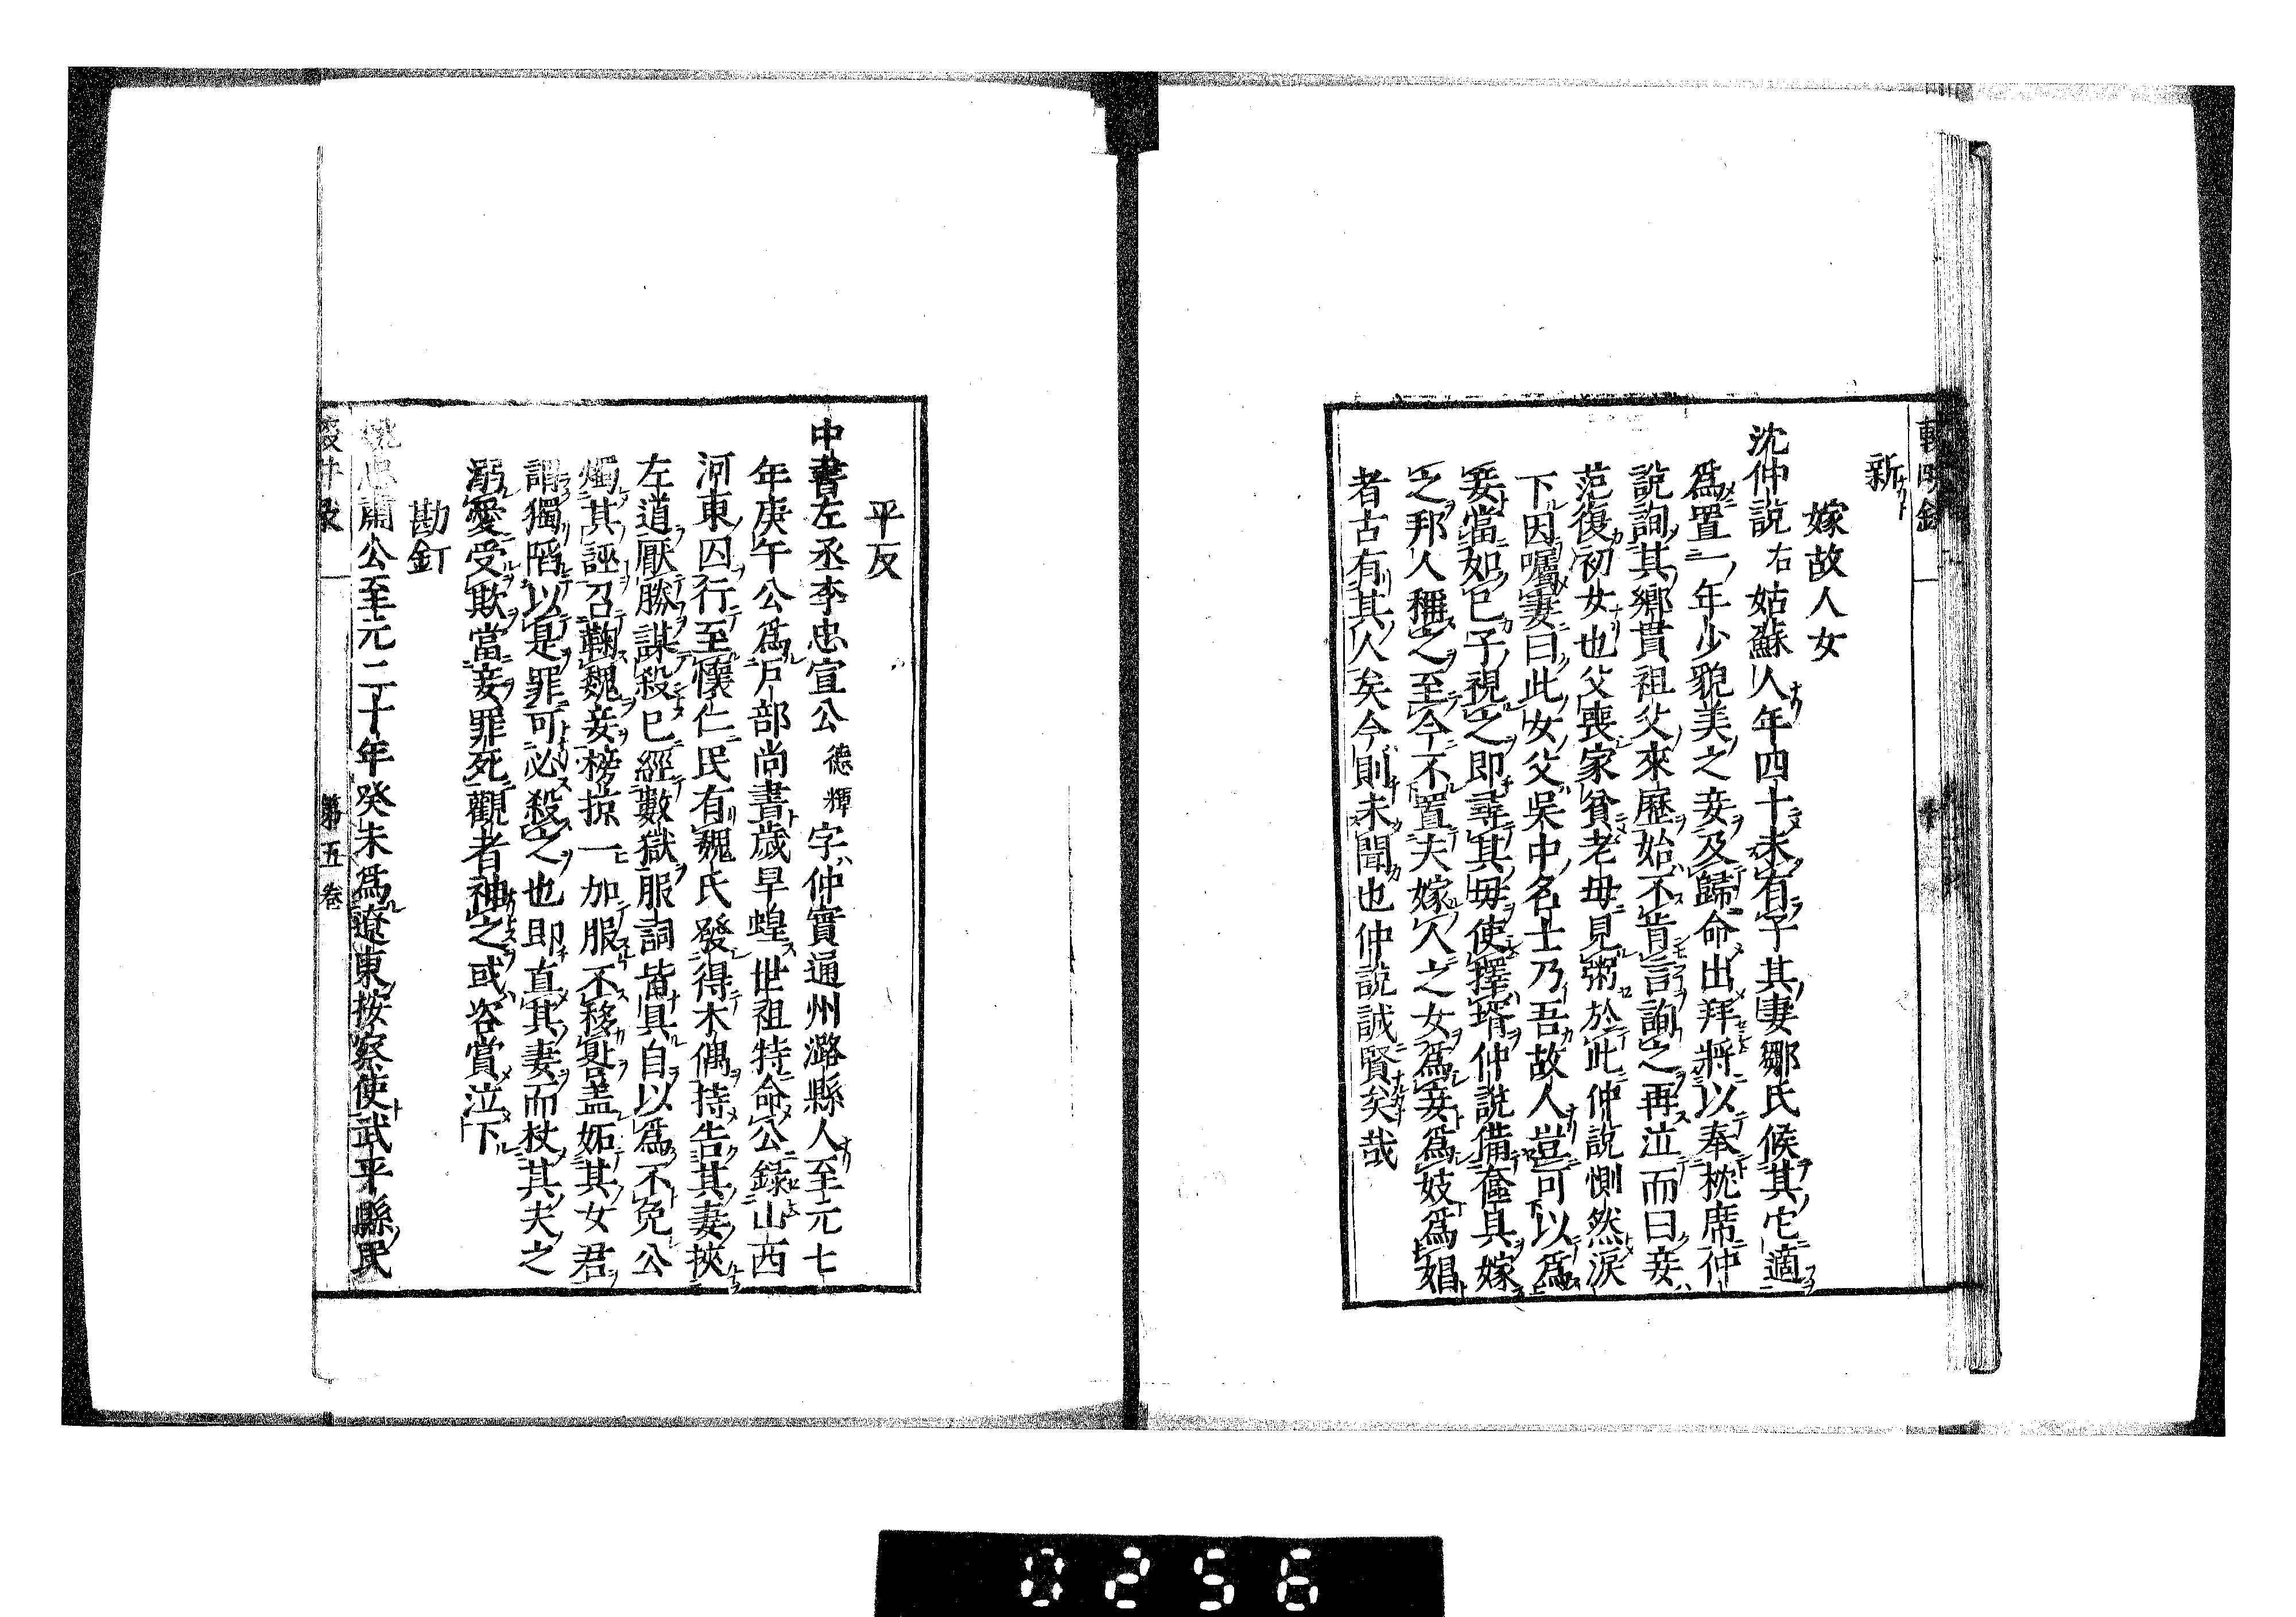 新
嫁故人女
沈仲說右姑蘇人年四十未有子其妻鄒氏候其它適
爲置一年少貌美之妾及歸命出拜將以奉枕席仲
說詢其鄉貫祖父來歷始不肯言詢之再泣而曰妾
范復初女也父喪家貧老母見粥於此仲說惻然淚
下因囑妻曰此女父吳中名士乃吾故人豈可以爲
妾當如己子視之即尋其毋使擇壻仲說備奩具嫁
之邦人稱之至今不置夫嫁人之女爲妾爲妓爲娼
者古有其人矣今則未聞也仲說誠賢矣哉
平反
中書左丞李忠宣公德輝字仲實通州潞縣人至元七
年庚午公爲戶部尚書歲旱蝗世祖特命公錄山西
河東囚行至懷仁民有魏氏發得木偶持告其妻挾
左道厭勝謀殺已經數獄服詞皆具自以爲不免公
燭其誣召鞠魏妾榜掠一加服不移晷盖妬其女君
謂獨陷以是罪可必殺之也即直其妻而杖其夫之
溺愛受欺當妾罪死觀者神之或咨賞泣下
勘釘
姚忠肅公至元二十年癸未爲遼東按察使武平縣民
第五卷
0256